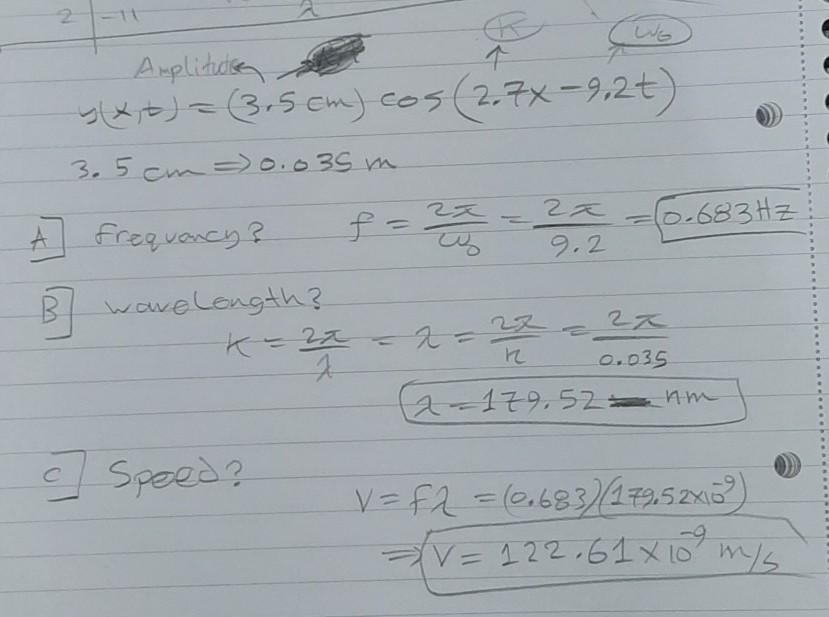 2 -11 λ
K W0
Amplitude
y(x,t) = (3.5 cm) cos(2.7x-9.2t)
3.5 cm => 0.035 m
A] frequency? f = 2π/ω0 = 2π/9.2 = 0.683Hz
B] wavelength?
K = 2π/λ = λ = 2π/k = 2π/0.035
λ = 179.52 nm
C] Speed?
V = fλ = (0.683)(179.52x10^-9)
=> V = 122.61 x 10^-9 m/s